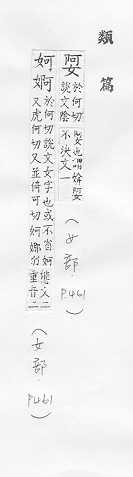 類篇
娿
於何切
說文陰
娿也謂媕娿
不決文一
(女部.P461)
妸婀
於何切說文女字也或不省妸態文二
又虎何切又並倚可切妸娜皃重音二
(女部.P461)